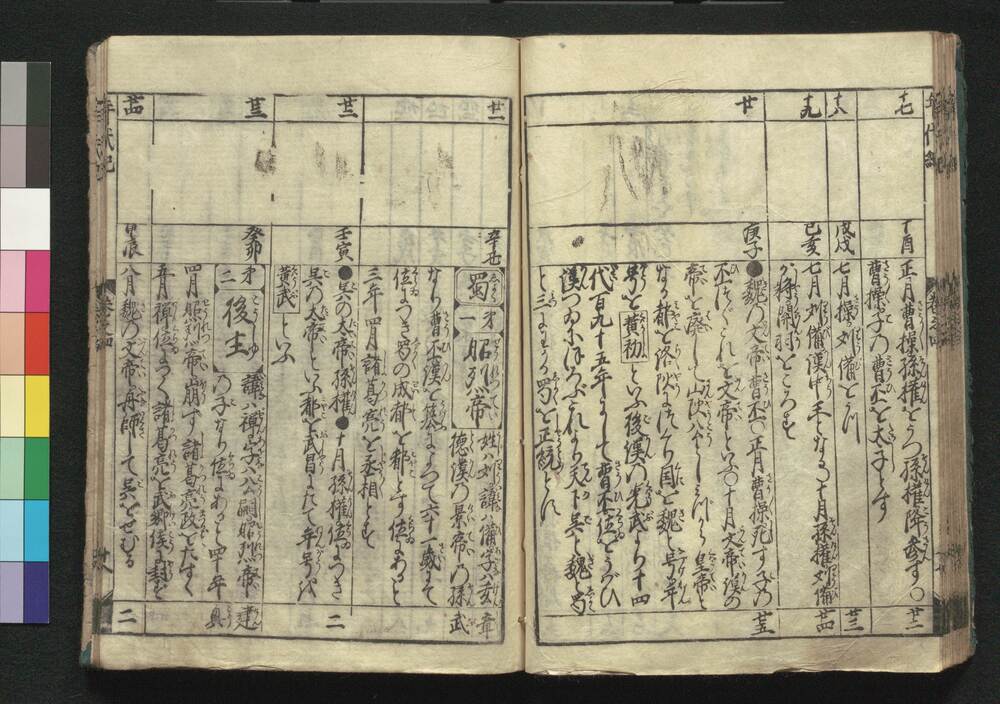 十七
丁酉
正月曹操孫権をうつ孫権降参す〇
曹操子の曹丕を太子とす
廿二
十八
戊戌
七月操刘備をうつ
廿三
十九
己亥
七月刘備漢中王となる十月孫権刘備
が将関羽をころす
廿四
廿
庚子
●魏の大帝曹丕〇正月曹操死す子の
丕つぐこれを文帝といふ〇十月文帝漢の
帝を廃し山陽公とし
号を黄初といふ後漢の光武より十四
代百九十五年にして曹丕位をうばひ
漢つゐにほろぶこれより天下呉と魏蜀
と三にわかる蜀を正統とす
廿五
廿一
辛丑
蜀
第一 昭烈帝
姓ハ刘諱ハ備字ハ玄
徳漢の景帝の孫
なり曹丕漢を
位につき蜀の成都を都とす位にあること
三年四月諸葛亮を丞相とす
章武
廿二
壬寅
●呉の大帝孫権●十月孫権位につき
呉の大帝といふ都を武昌にたて年号を
黄武といふ
二
廿三
癸卯
第二 後主
諱ハ禅字ハ公嗣昭烈帝
の子なり位にあること四十年
四月昭烈帝崩す諸葛亮政をたすく
五月禅位につく諸葛亮を武郷侯に封ず
建興
廿四
甲辰
八月魏の文帝舟師して呉をせむる
二
年代記
巻之四